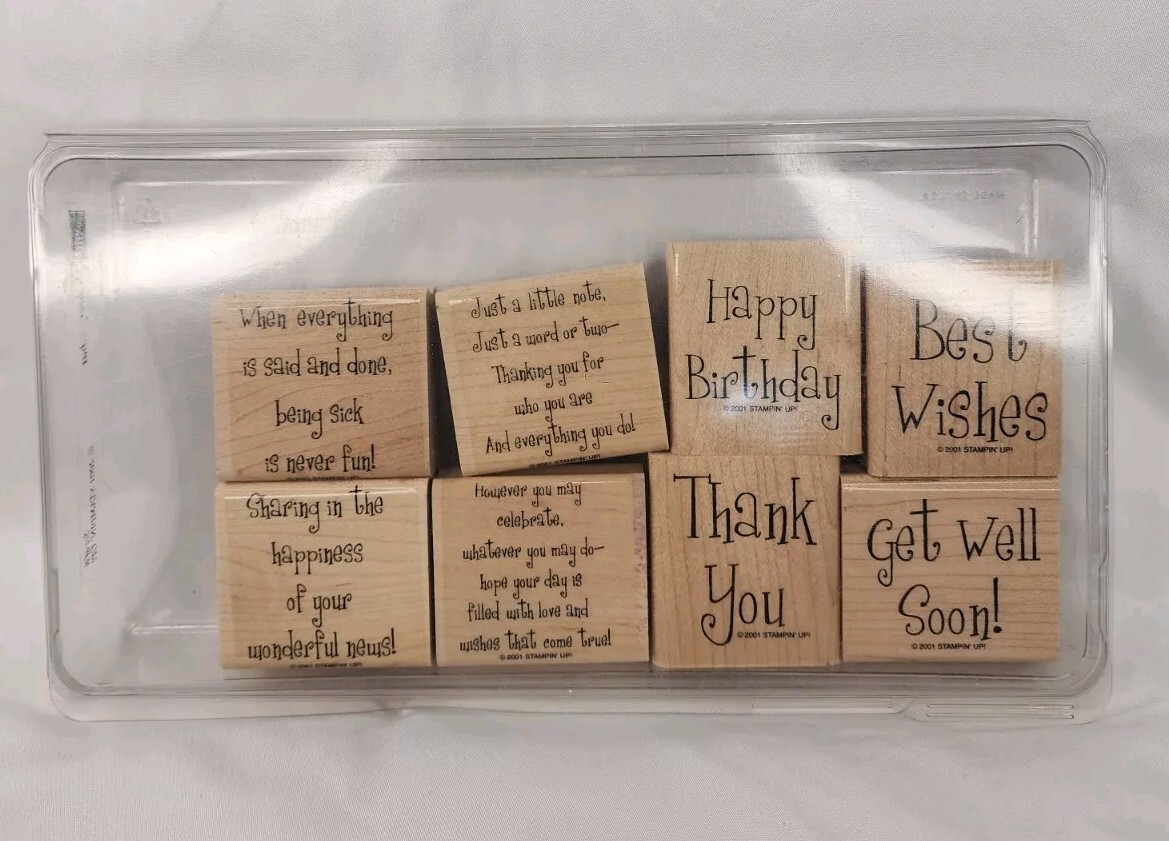 When everything
is said and done,
being sick
is never fun!
Just a little note,
Just a word or two—
Thanking you for
who you are
And everything you do!
© 2001 STAMPIN' UP!
Happy
Birthday
© 2001 STAMPIN' UP!
Best
Wishes
© 2001 STAMPIN' UP!
Sharing in the
happiness
of your
wonderful news!
© 2001 STAMPIN' UP!
However you may
celebrate,
whatever you may do—
hope your day is
filled with love and
wishes that come true!
© 2001 STAMPIN' UP!
Thank
You
© 2001 STAMPIN' UP!
Get Well
Soon!
© 2001 STAMPIN' UP!